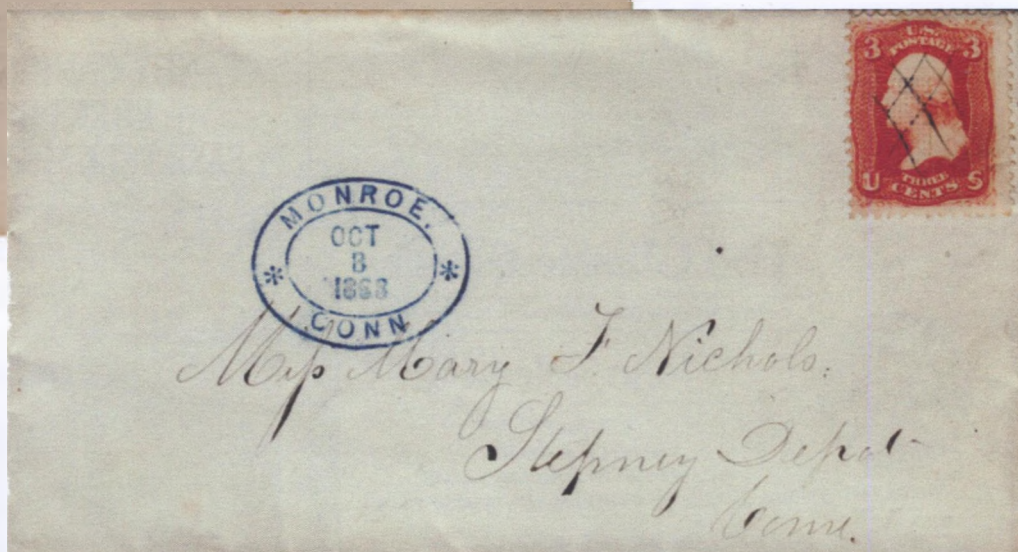 U.S.
POSTAGE
3 3
THREE
CENTS
U S
MONROE.
OCT
8
1868
* *
CONN
Miss Mary F. Nichols.
Stepney Depot
Conn.